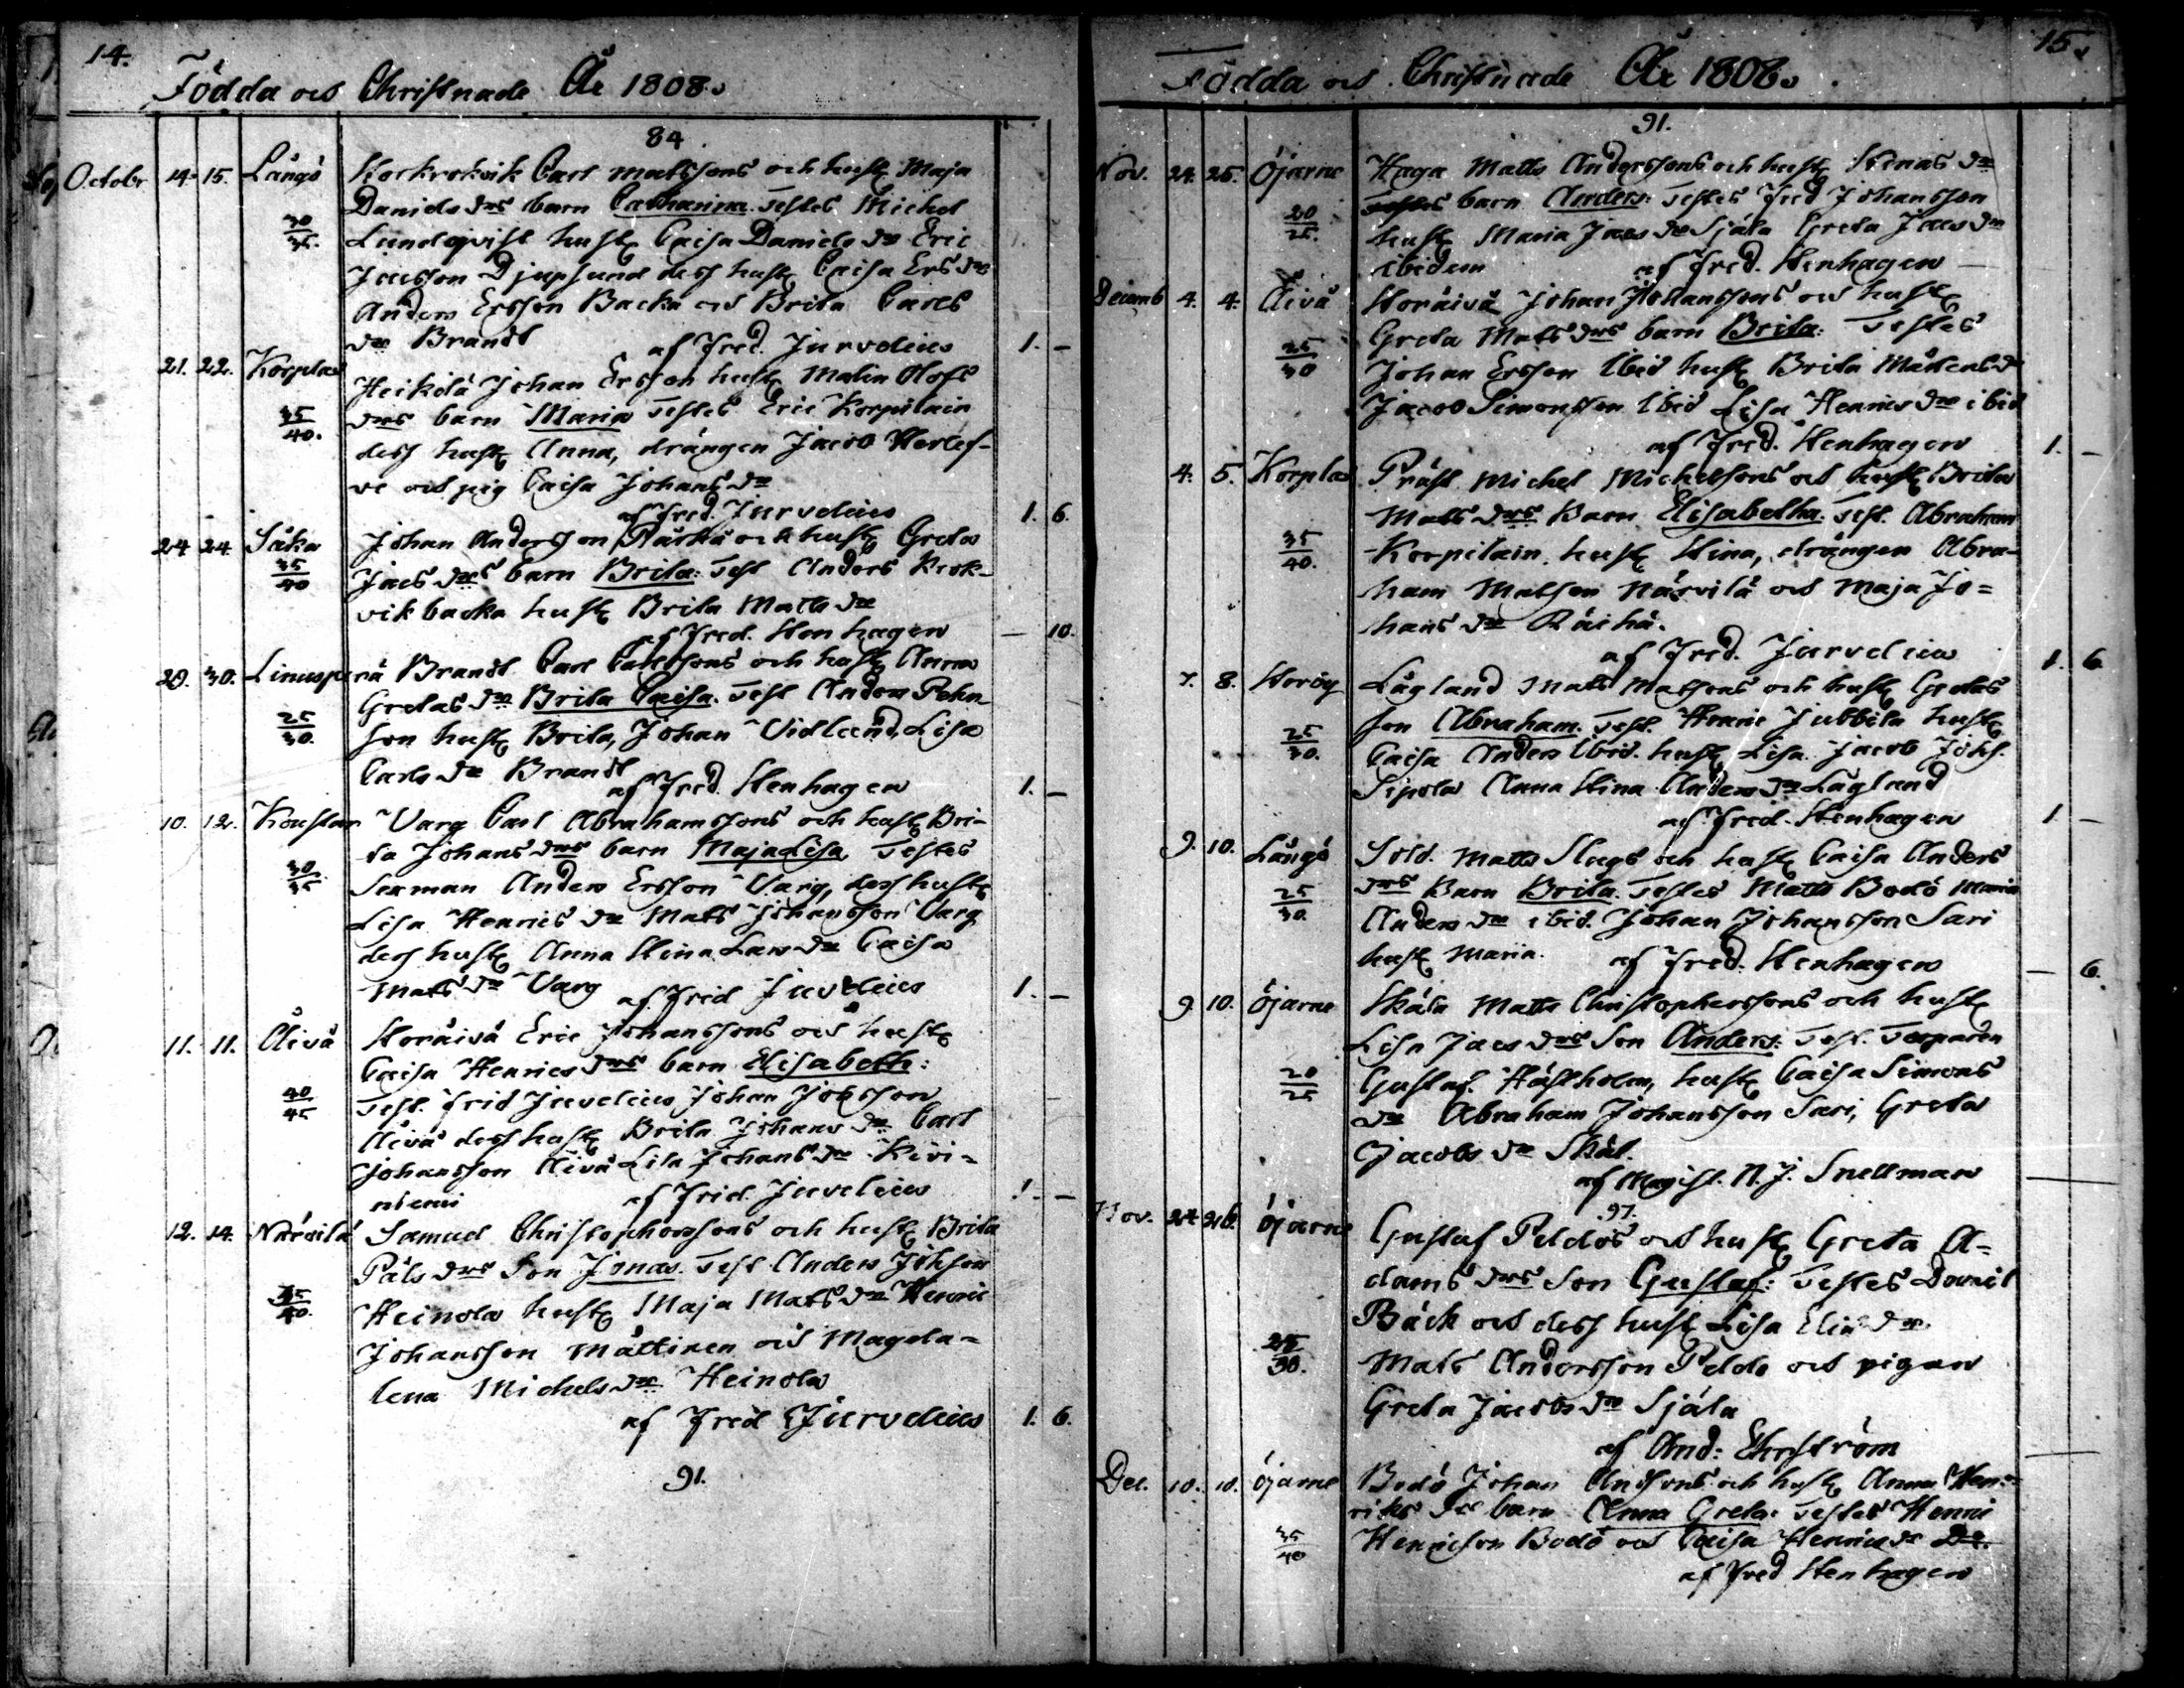 14.
Födda och Christnade År 1808.
84.
Octobr 14. 15. Långö Storkrokvik Carl Matssons och hust. Maja
Daniels drs barn Catharina. Testes Michel
30/35. Lundqvist hust. Caisa Daniels dr Eric
Jacsson Djupsund dess hust. Caisa Ers dr
Anders Ersson Backa och Brita Carls
dr Brandt af Fred. Jurvelius 1. —
21. 22. Korplax Heikilä Johan Ersson hust. Malin Olofs
35/40. drs barn Maria Testes Eric Korpilain
dess hust. Anna, drängen Jacob Herlef-
ve och pig Caisa Johans dr
af Fred. Jurvelius 1. 6.
24 24 Såka Johan Andersson och hust. Greta
35/40 Jacs drs barn Brita: Test Anders Krok-
vik backa hust. Brita Matts dr
af Fred. Stenhagen — 10.
29. 30. Linusperä Brandt Carl Carlssons och hust. Anna
Gretas dr Brita Caisa. Test Anders Pehr-
25/30. son hust. Brita, Johan Vidlund, Lisa
Carls dr Brandt af Fred. Stenhagen 1. —
10. 12. Varg Carl Abrahamssons och hust. Bri-
ta Johans drs barn Maja Lisa Testes
30/35 Sexman Anders Ersson Varg, dess hust.
Lisa Henrics dr Mats Johansson Varg
dess hust. Anna Stina Lars dr Caisa
Mats dr Varg af Fred Jurvelius 1. —
11. 11. Åivå Storåivå Eric Johanssons och hust.
Caisa Henrics drs barn Elisabeth:
40/45 Test. Fred Jurvelius Johan Johsson
Åivå dess hust. Brita Johans dr Carl
Johansson Åivå Lisa Johans dr Kivi-
niemi af Fred. Jurvelius 1. —
12. 14. Närvilä Samuel Christophersons och hust. Brita
Påls drs Son Jonas. Test Anders Johsson
35/40. Heinola hust. Maja Mats dr Henric
Johansson Måttinen och Magda-
lena Michels dr Heinola
af Fred Jurvelius 1. 6.
91.
15.
Födda och Christnade År 1808.
91.
Nov. 24. 25. Öjarne Haga Matts Anderssons och hust. Stinas dr
20/25. barn Anders: Testes Fred Johansson
hust. Maria Jacs dr Sjåla Greta Jacs dr
ibidem af Fred. Stenhagen —
Decemb 4. 4. Åivå Storåivå Johan Johanssons och hust.
Greta Mats drs barn Brita: Testes
25/30 Johan Ersson Ibid hust. Brita Mårtens dr
Jacob Simonsson Ibid Lisa Henrics dr ibid
af Fred. Stenhagen 1. —
4. 5. Korplax Präst Michel Michelssons och hust. Brita
Matts drs Barn Elisabetha. Test. Abraham
35/40. Korpilain hust. Stina, drängen Abra-
ham Matsson Närvilä och Maja Jo=
hans dr Räihä.
af Fred. Jurvelius 1. 6.
7. 8. Storöy Lågland Matts Matssons och hust. Gretas
son Abraham. Test. Henric Jubbila hust.
25/30. Caisa Anders Ibid. hust. Lisa Jacob Johs.
Sipola Anna Stina Anders dr Lågland
af Fred. Stenhagen 1. —
9. 10. Långö Sold. Matts Slags och hust. Caisa Anders
drs Barn Brita. Testes Matts Bodö Maria
25/30. Anders dr ibid. Johan Johansson Sari
hust. Maria. af Fred. Stenhagen — 6.
9. 10. Öjarne Skåla Matts Christopherssons och hust.
Lisa Jacs drs Son Anders: Test.
20/25 Gustaf Hästholm, hust. Caisa Simons
dr Abraham Johansson Sari, Greta
Jacobs dr Skål.
af Magist. N. J. Snellman —
97.
Nov. 24 26. Öjarne Gustaf Peldos och hust. Greta A=
dams drs Son Gustaf: Testes Daniel
Bäck och dess hust. Lisa Elia dr
25/30. Mats Andersson Peldo och pigan
Greta Jacobs dr Sjåla
af And: Ehrström —
Dec. 10. 10. Öjarne Bodö Johan Andssons och hust. Anna Hen=
riks dr barn Anna Greta: Testes Henric
35/40 Henricson Bodö och Caisa Henrics dr
af Fred Stenhagen